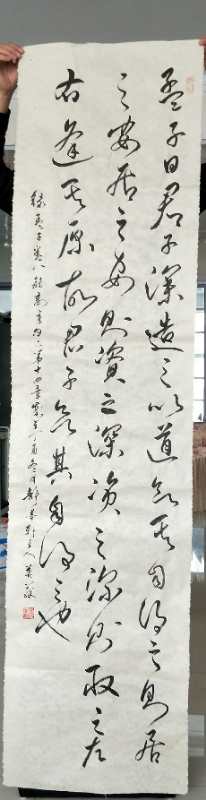 孟子曰君子深造之以道欲其自得之自得之则居
之安居之安则资之深资之深则取之左
右逢其原故君子欲其自得之也
录孟子卷八离娄章句下第十四章